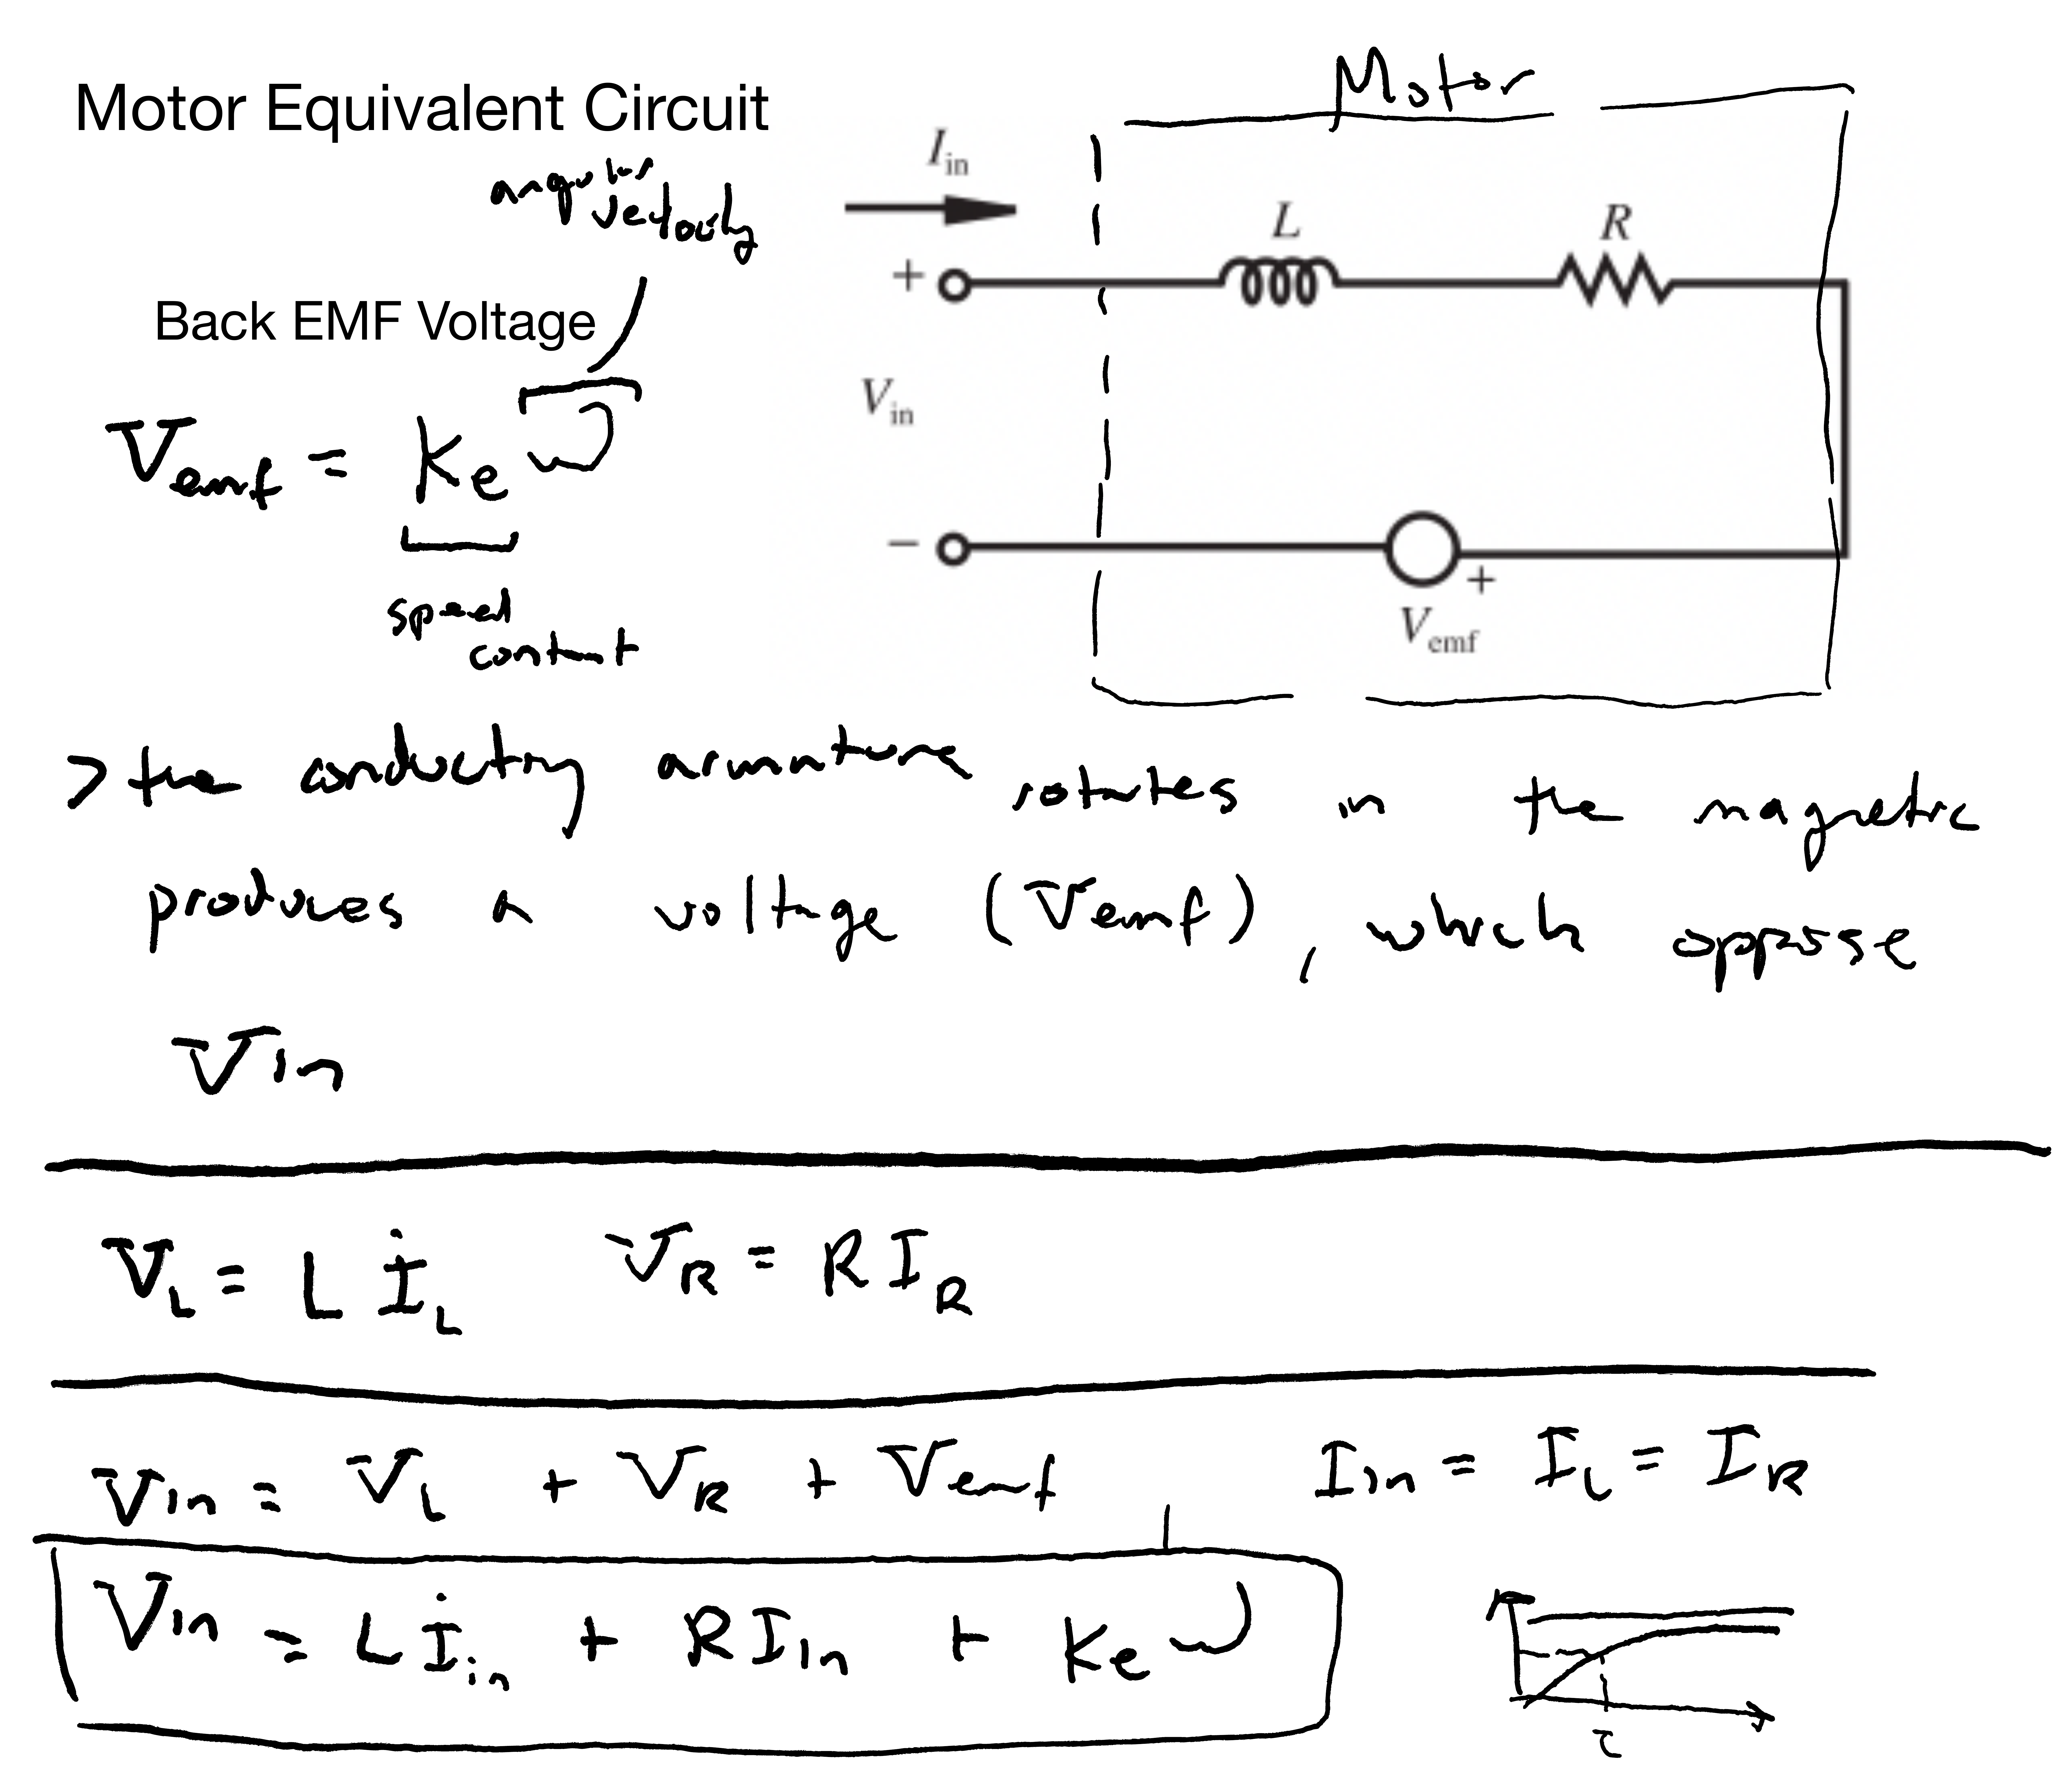 Motor Equivalent Circuit
Motor
angular
velocity
I_in
L
R
Back EMF Voltage
+
V_in
V_emf = k_e ω
−
+
V_emf
speed
constant
> the conducting armature rotates in the magnetic
produces a voltage (Vemf), which oppose
Vin
V_L = L İ_L V_R = R I_R
Vin = V_L + V_R + Vemf I_in = I_L = I_R
Vin = L İ_in + R I_in + k_e ω
τ